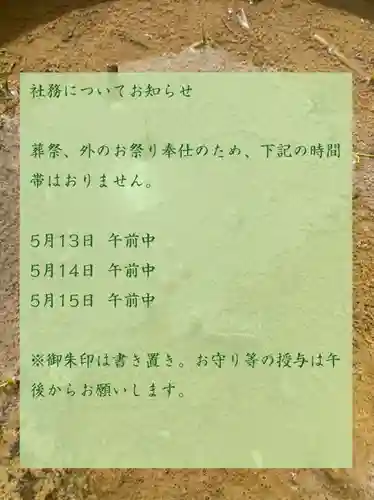 社務についてお知らせ
葬祭、外のお祭り奉仕のため、下記の時間
帯はおりません。
5月13日 午前中
5月14日 午前中
5月15日 午前中
※御朱印は書き置き。お守り等の授与は午
後からお願いします。